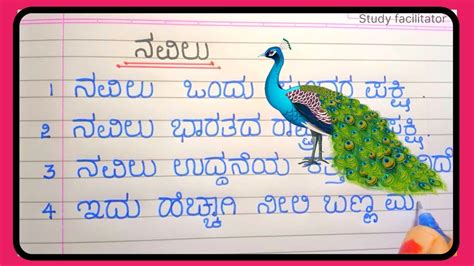 Study facilitator
ನವಿಲು
1 ನವಿಲು ಒಂದು ಪಕ್ಷಿ
2 ನವಿಲು ಭಾರತದ ಪಕ್ಷಿ
3 ನವಿಲು ಉದ್ದನೆಯ
4 ಇದು ಹೆಚ್ಚಾಗಿ ನೀಲಿ ಬಣ್ಣ ಮ